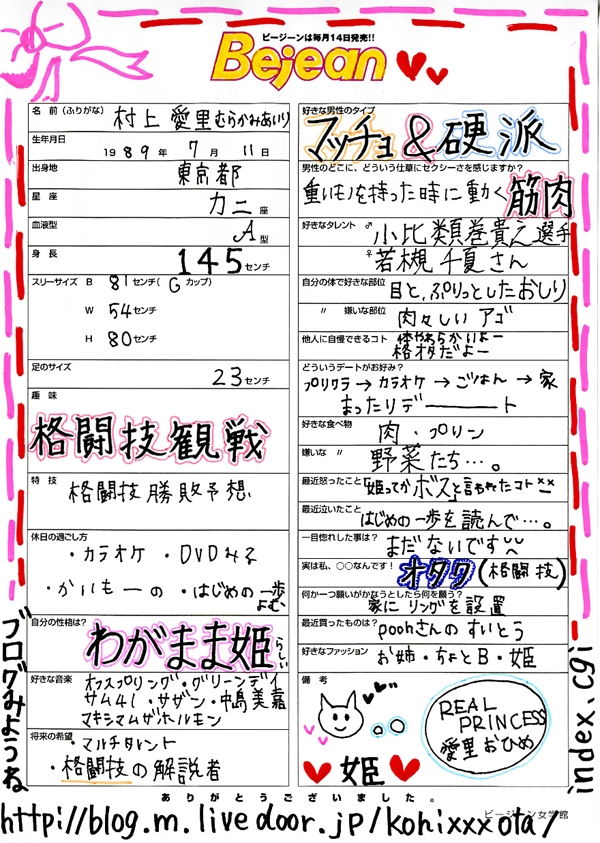 ビージーンは毎月14日発売!!
Bejean
名 前 (ふりがな) 村上 愛里 むらかみあいり
生年月日 1989年 7月 11日
出身地 東京都
星 座 カニ座
血液型 A型
身 長 145センチ
スリーサイズ B 81センチ (Gカップ)
W 54センチ
H 80センチ
足のサイズ 23センチ
趣 味
格闘技観戦
特 技
格闘技勝敗予想
休日の過ごし方
・カラオケ ・DVDみる
・かいもーの ・はじめの一歩よむ
自分の性格は?
わがまま姫らしい
好きな音楽
オフスプリング・グリーンデイ
サム41・サザン・中島美嘉
マキシマムザホルモン
将来の希望
・マルチタレント
・格闘技の解説者
好きな男性のタイプ
マッチョ&硬派
男性のどこに、どういう仕草にセクシーさを感じますか?
重いモノを持った時に動く筋肉
好きなタレント ♂ 小比類巻貴之選手
♀ 若槻千夏さん
自分の体で好きな部位 目と、ぷりっとしたおしり
〃 嫌いな部位 肉々しいアゴ
他人に自慢できるコト 体やわらかいよー
格オタだよー
どういうデートがお好み?
プリクラ→カラオケ→ごはん→家
まったりデーーート
好きな食べ物 肉・プリン
嫌いな 〃 野菜たち…。
最近怒ったこと 「姫ってかボス」と言われたコト××
最近泣いたこと はじめの一歩を読んで…。
一目惚れした事は? まだないです
実は私、○○なんです! オタク(格闘技)
何か一つ願いがかなうとしたら何を願う?
家にリングを設置
最近買ったものは? poohさんのすいとう
好きなファッション お姉・ちょとB・姫
備 考
REAL
PRINCESS
愛里おひめ
♥ 姫 ♥
ありがとうございました。
ビージーン女学館
ブログみようね
http://blog.m.livedoor.jp/kohixxxota/
index.cgi